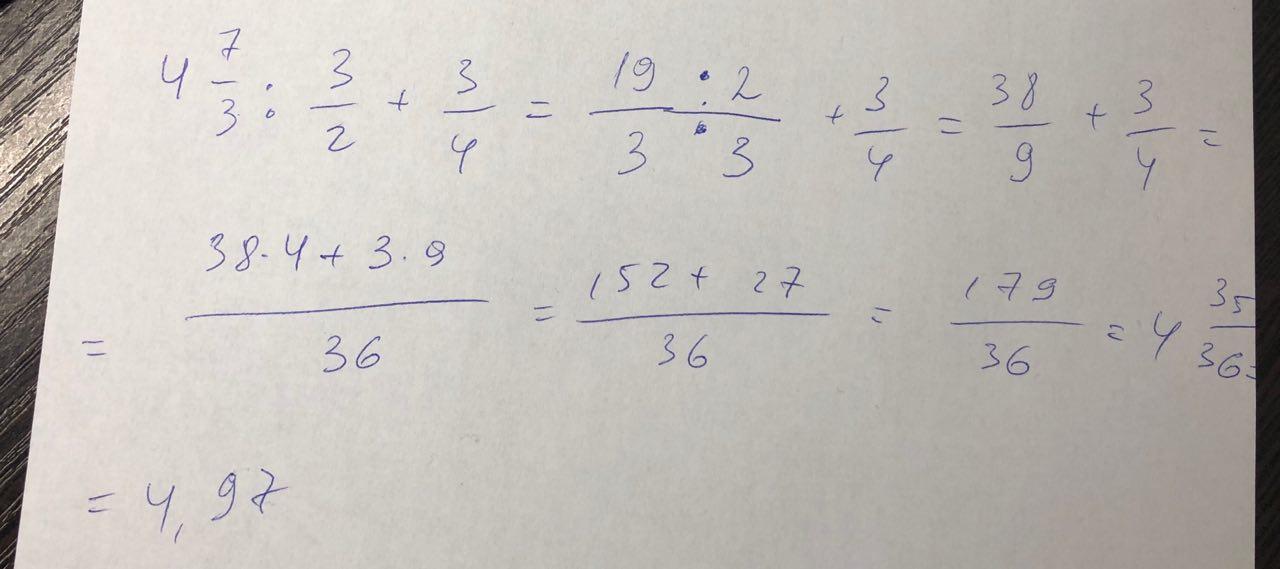 4 7/3 : 3/2 + 3/4 = 19 · 2 / 3 · 3 + 3/4 = 38/9 + 3/4 =
= 38·4 + 3·9 / 36 = 152 + 27 / 36 = 179/36 = 4 35/36 =
= 4,97